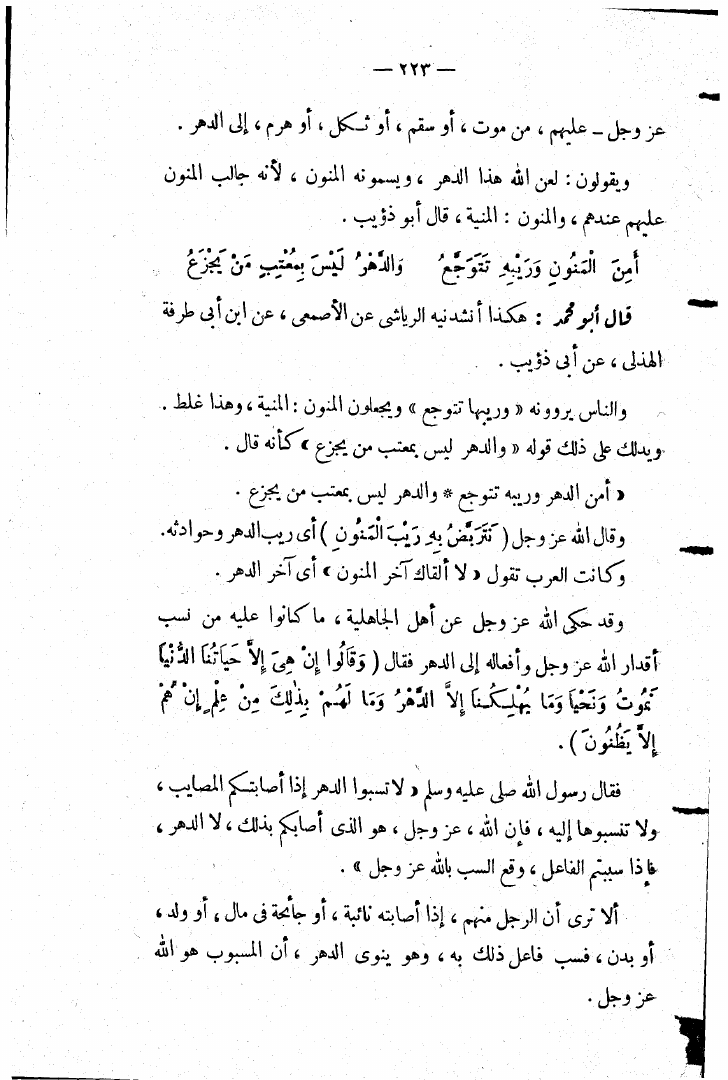 — ٢٢٣ —
عز وجل ــ عليهم ، من موت ، أو سقم ، أو ثـكل ، أو هرم ، إلى الدهر .
ويقولون : لعن الله هذا الدهر ، ويسمونه المنون ، لأنه جالب المنون
عليهم عندهم ، والمنون : المنية ، قال أبو ذؤيب .
أَمِنَ الْمَنُونِ وَرَيْبِهِ تَتَوَجَّعُ وَالدَّهْرُ لَيْسَ بِمُعْتِبٍ مَنْ يَجْزَعُ
قال أبو محمد : هكذا أنشدنيه الرياشى عن الأصمعى ، عن ابن أبى طرفة
الهذلى ، عن أبى ذؤيب .
والناس يروونه « وريبها تتوجع » ويجعلون المنون : المنية ، وهذا غلط .
ويدلك على ذلك قوله « والدهر ليس بمعتب من يجزع » كأنه قال .
« أمن الدهر وريبه تتوجع * والدهر ليس بمعتب من يجزع .
وقال الله عز وجل ( نَتَرَبَّصُ بِهِ رَيْبَ الْمَنُونِ ) أى ريب الدهر وحوادثه.
وكانت العرب تقول « لا ألقاك آخر المنون » أى آخر الدهر .
وقد حكى الله عز وجل عن أهل الجاهلية ، ما كانوا عليه من نسب
أقدار الله عز وجل وأفعاله إلى الدهر فقال ( وَقَالُوا إِنْ هِىَ إِلاَّ حَيَاتُنَا الدُّنْيَا
نَمُوتُ وَنَحْيَا وَمَا يُهْلِـكُـنَا إِلاَّ الدَّهْرُ وَمَا لَهُمْ بِذٰلِكَ مِنْ عِلْمٍ إِنْ هُمْ
إِلاَّ يَظُنُّونَ ) .
فقال رسول الله صلى عليه وسلم « لا تسبوا الدهر إذا أصابتـكم المصايب ،
ولا تنسبوها إليه ، فإن الله ، عز وجل ، هو الذى أصابكم بذلك ، لا الدهر ،
فإذا سببتم الفاعل ، وقع السب بالله عز وجل » .
ألا ترى أن الرجل منهم ، إذا أصابته نائبة ، أو جأئحة فى مال ، أو ولد ،
أو بدن ، فسب فاعل ذلك به ، وهو ينوى الدهر ، أن المسبوب هو الله
عز وجل .